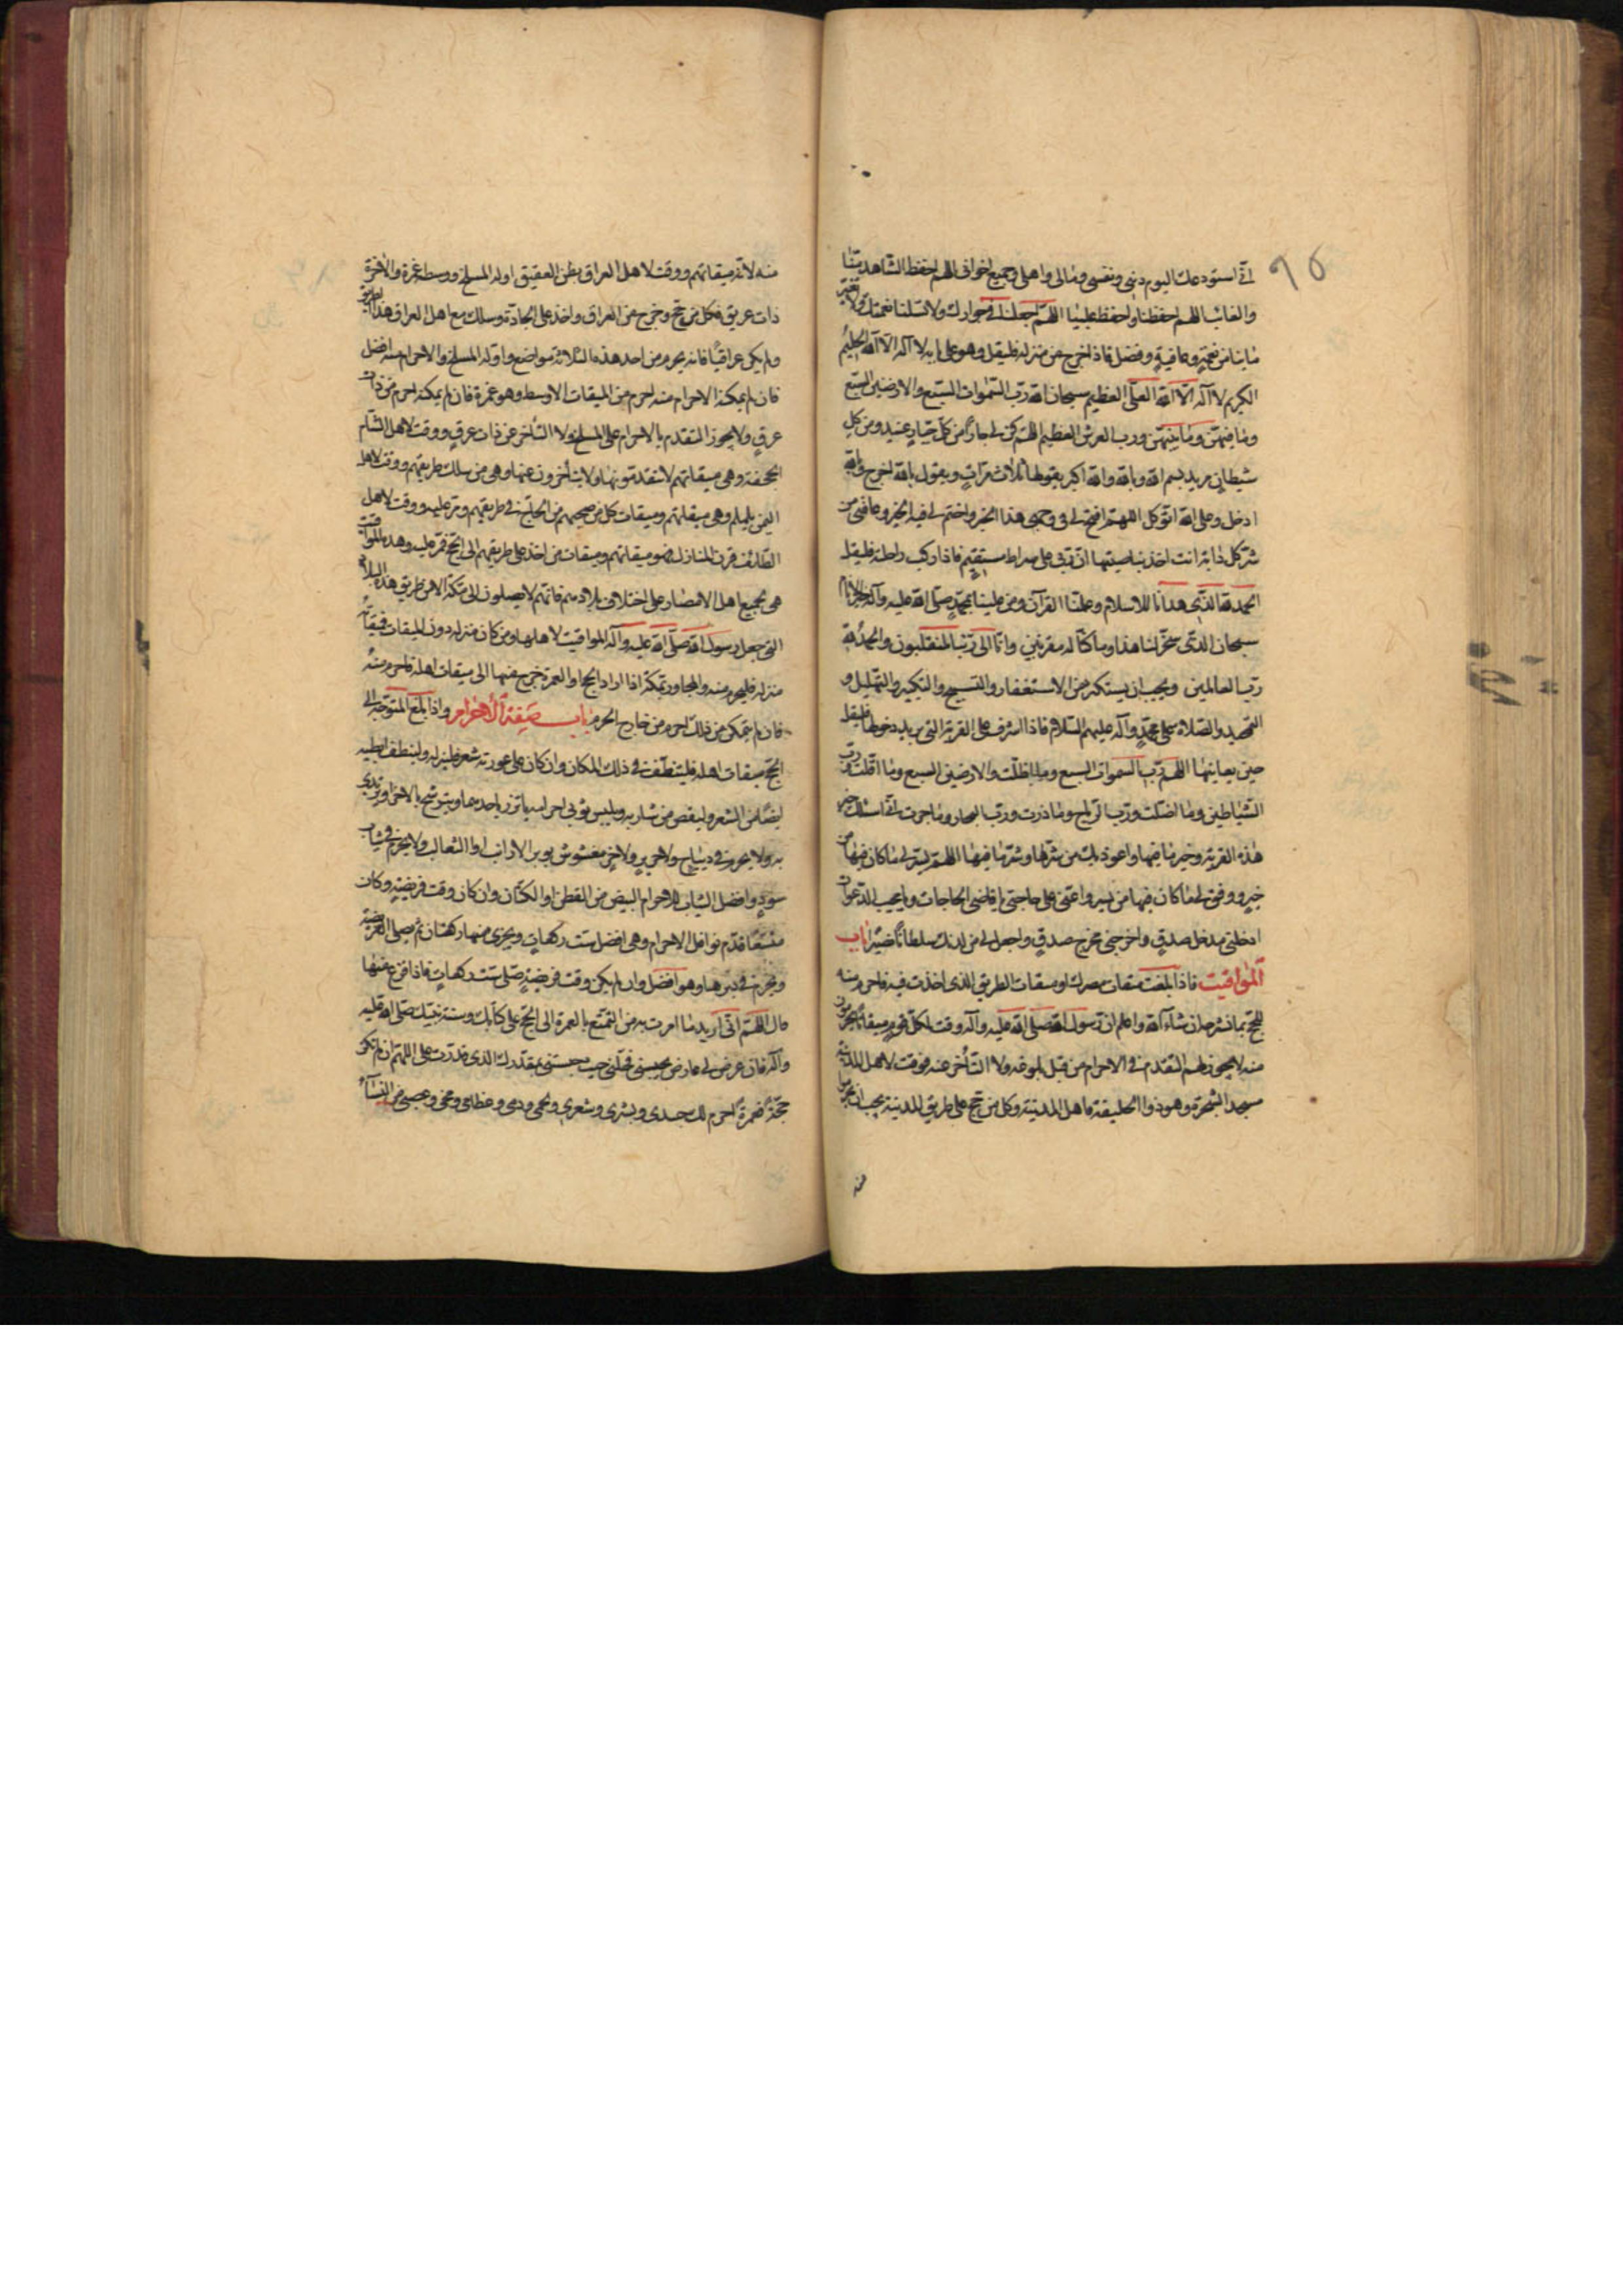 ٩٥
اني استودعك اليوم ديني ونفسي ومالي واهلي وجميع اخواني اللهم احفظ الشاهد منا
والغائب اللهم احفظنا واحفظ علينا اللهم اجعلنا في جوارك ولا تسلبنا نعمتك ولا تغير
ما بنا من نعمة وعافية وفضل فاذا خرج من منزله فليقل وهو على بابه لا اله الا الله الحليم
الكريم لا اله الا الله العلي العظيم سبحان الله رب السموات السبع والارضين السبع
وما فيهن وما بينهن ورب العرش العظيم اللهم كن لي جارا من كل جبار عنيد ومن كل
شيطان مريد بسم الله وبالله والله اكبر يقولها ثلاث مرات ويقول بالله اخرج وبالله
ادخل وعلى الله اتوكل اللهم افتح لي في وجهي هذا الخير واختم لي فيه الخير وعافني من
شر كل دابة انت اخذ بناصيتها ان ربي على صراط مستقيم فاذا ركب راحلته فليقل
الحمد لله الذي هدانا للاسلام وعلمنا القرآن ومن علينا بمحمد صلى الله عليه وآله خير الانام
سبحان الذي سخر لنا هذا وما كنا له مقرنين وانا الى ربنا لمنقلبون والحمد لله
رب العالمين ويجب ان يستكثر من الاستغفار والتسبيح والتكبير والتهليل و
التحميد والصلاة على محمد وآله عليهم السلام فاذا اشرف على القرية التي يريد دخولها فليقل
حين يعاينها اللهم رب السموات السبع وما اظلت والارضين السبع وما اقلت ورب
الشياطين وما اضلت ورب الرياح وما ذرت ورب البحار وما جرت اني اسئلك خير
هذه القرية وخير ما فيها واعوذ بك من شرها وشر ما فيها اللهم يسر لي ما كان فيها من
خير ووفق لي ما كان فيها من يسر واعني على حاجتي يا قاضي الحاجات ويا مجيب الدعوات
ادخلني مدخل صدق واخرجني مخرج صدق واجعل لي من لدنك سلطانا نصيرا باب
المواقيت فاذا بلغت ميقات مصرك او ميقات الطريق الذي اخذت فيه فاحرم منه
للحج بما نشرحه ان شاء الله واعلم ان رسول الله صلى الله عليه وآله وقت لكل قوم ميقاتا يحرمون
منه لا يجوز لهم التقدم في الاحرام من قبل بلوغه ولا التأخر عنه فوقت لاهل المدينة
مسجد الشجرة وهو ذو الحليفة فاهل المدينة وكل من حج على طريق المدينة يجب ان يحرم
منه
منه لانه ميقاتهم ووقت لاهل العراق بطن العقيق اوله المسلخ ووسطه غمرة والاخرة
ذات عريق فكل من حج وخرج من العراق واخذ على الجادة وسلك مع اهل العراق هذا الطريق
ولم يكن عراقيا فانه يحرم من احد هذه الثلاثة مواضع واوله المسلخ والاحرام منه افضل
فان لم يمكنه الاحرام منه احرم من الميقات الاوسط وهو غمرة فان لم يمكنه احرم من ذات
عرق ولا يجوز التقدم بالاحرام على المسلخ ولا التأخر عن ذات عرق ووقت لاهل الشام
الجحفة وهي ميقاتهم لا يتقدمونها ولا يتأخرون عنها وهي من سلك طريقهم ووقت لاهل
اليمن يلملم وهي ميقاتهم وميقات كل من صحبهم من الحاج في طريقهم ومر عليه ووقت لاهل
الطائف قرن المنازل فهو ميقاتهم وميقات من اخذ على طريقهم الى الحج فمر عليه وهذه المواقيت
هي لجميع اهل الامصار على اختلاف بلادهم فانهم لا يصلون الى مكة الا من طريق هذه البلاد
التي جعل رسول الله صلى الله عليه وآله المواقيت لاهلها ومن كان منزله دون الميقات فميقاته
منزله فليحرم منه والمجاور بمكة اذا اراد الحج او العمرة خرج منها الى ميقات اهله فاحرم منه
فان لم يتمكن من ذلك احرم من خارج الحرم باب صفة الاحرام واذا بلغ المتوجه الى
الحج ميقات اهله فليتنظف في ذلك المكان وان كان على عورته شعر فليزله ولينظف ابطيه
ايضا من الشعر وليقص من شاربه ويلبس ثوبي احرامه ياتزر باحدهما ويتوشح بالاخر او يرتدي
به ولا يحرم في ديباج ولا حرير ولا خز مغشوش بوبر الارانب او الثعالب ولا يحرم في ثياب
سود وافضل الثياب للاحرام البيض من القطن او الكتان وان كان وقت فريضة وكان
متسعا قدم نوافل الاحرام وهي افضل ست ركعات ويجزى منها ركعتان ثم صلى الفريضة
ويحرم في دبرها وهو افضل وان لم يكن وقت فريضة صلى ست ركعات فاذا فرغ منها
قال اللهم اني اريد ما امرت به من التمتع بالعمرة الى الحج على كتابك وسنة نبيك صلى الله عليه
وآله فان عرض لي عارض يحبسني فحلني حيث حبستني بقدرك الذي قدرت علي اللهم ان لم تكن
حجة فعمرة احرم لك جسدي وبشري وشعري ولحمي ودمي وعظامي ومخي وعصبي من النساء